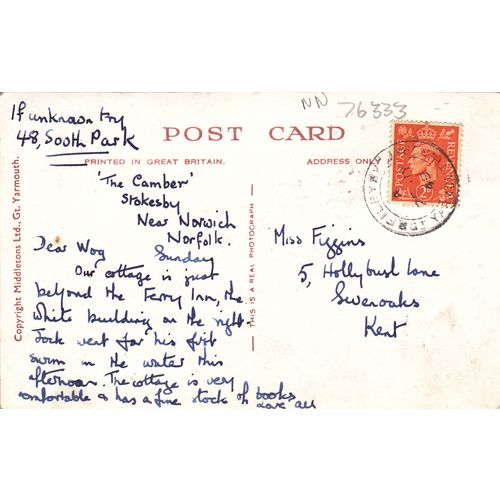 NN 76333
If unknown try
48, South Park
POST CARD
PRINTED IN GREAT BRITAIN.
ADDRESS ONLY
'The Camber'
Stokesby
Near Norwich
Norfolk.
Sunday
Dear Wog
Our cottage is just
beyond the Ferry Inn, the
white building on the right.
Jock went for his first
swim in the water this
afternoon. The cottage is very
comfortable & has a fine stock of books
Love all
Copyright Middletons Ltd., Gt. Yarmouth.
THIS IS A REAL PHOTOGRAPH
Miss Figgins
5, Hollybush Lane
Sevenoaks
Kent
POSTAGE
REVENUE
2D